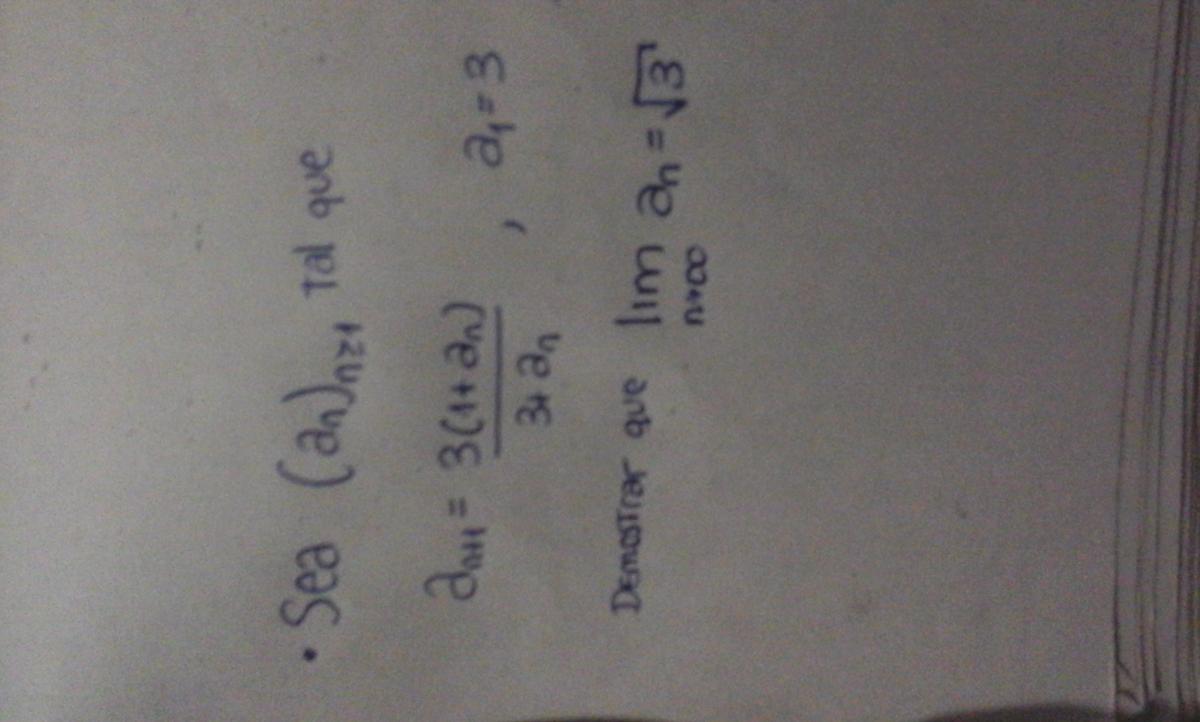 • Sea (an)n≥1 Tal que
an+1 = 3(1+an) / 3+an , a1 = 3
Demostrar que lim n→∞ an = √3